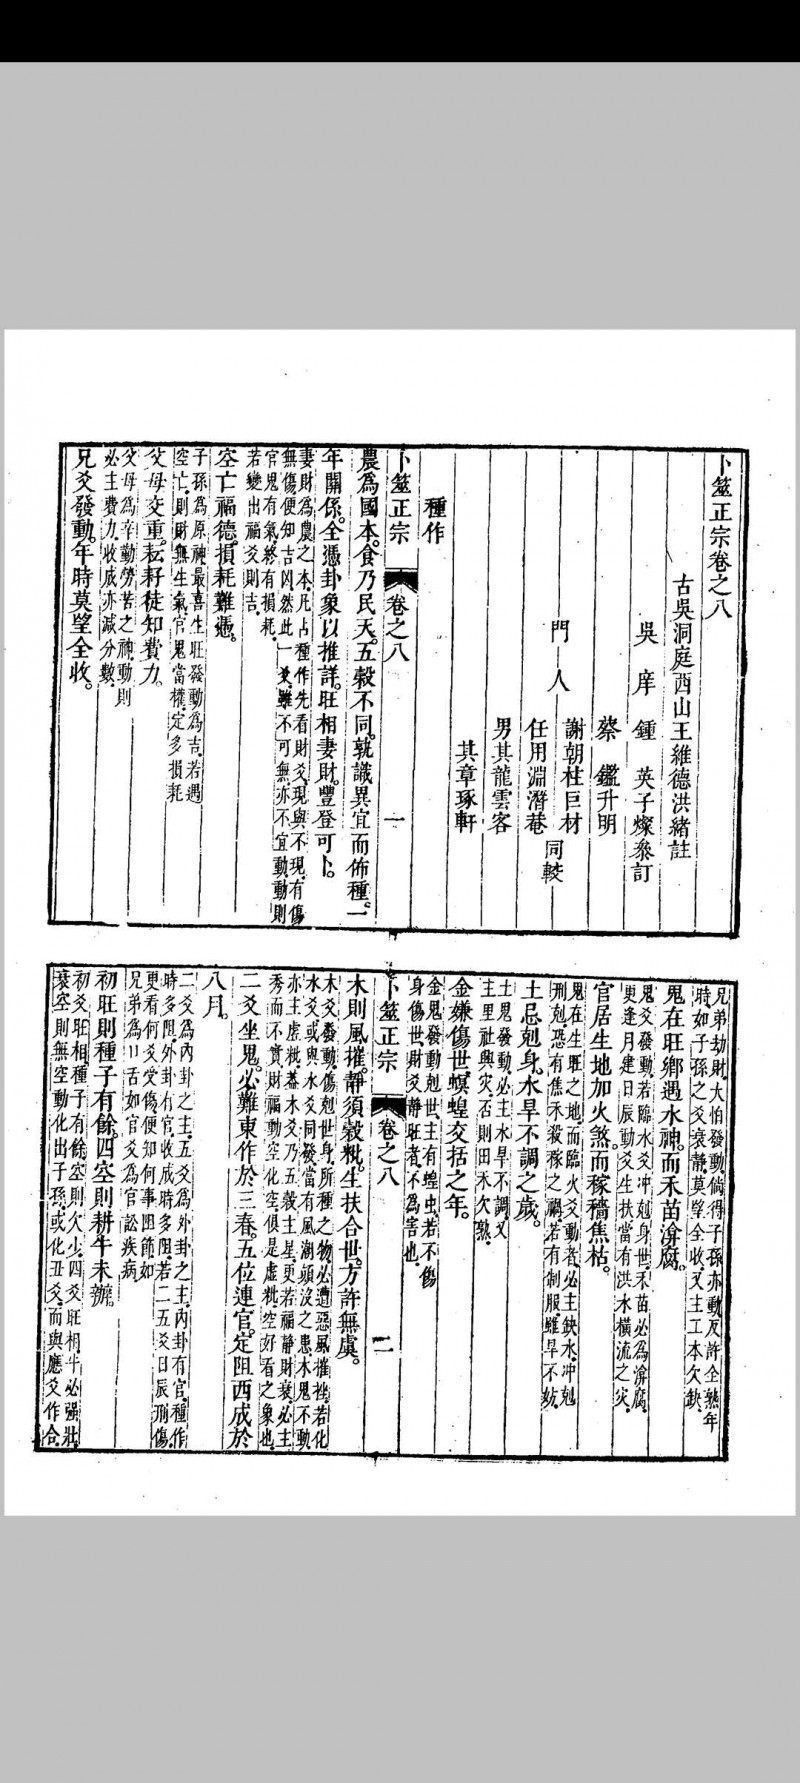 卜筮正宗卷之八
古吳洞庭西山王維德洪緒註
吳庠鍾英子燦參訂
蔡鑑升明
門人
謝朝柱巨材
同較
任用淵潛菴
男其龍雲客
其章琢軒
種作
卜筮正宗 卷之八 一
農為國本食乃民天。五穀不同。孰識異宜而佈種。一
年關係。全憑卦象以推詳。旺相妻財。豐登可卜。
妻財為農之本凡占種作先看財爻現與不現有傷
無傷便知吉凶然此一爻雖不可無亦不宜動動則
官鬼有氣終有損耗
若變出福爻則吉
空亡福德。損耗難憑。
子孫為原神最喜生旺發動為吉若遇
空亡則財無生氣官鬼當權定多損耗
父母交重。耘耔徒知費力。
父母為辛勤勞苦之神動則
必主費力收成亦減分數
兄爻發動。年時莫望全收。
兄弟劫財大怕發動倘得子孫亦動反許全熟年
時如子孫之爻衰靜莫望全收又主工本欠缺
鬼在旺鄉遇水神。而禾苗渰腐。
鬼爻發動若臨水爻冲剋身世禾苗必為渰腐
更逢月建日辰動爻生扶當有洪水橫流之災
官居生地加火煞。而稼穡焦枯。
鬼在生旺之地而臨火爻動者必主缺水冲剋
刑剋恐有焦禾殺稼之禍若有制服雖旱不妨
土忌剋身。水旱不調之歲。
土鬼發動必主水旱不調又
主里社興災否則田禾欠熟
金嫌傷世。螟蝗交括之年。
金鬼發動剋世主有蝗虫若不傷
身傷世財爻靜旺者不為害也
卜筮正宗 卷之八 二
木則風摧。靜須穀粃。生扶合世。方許無虞。
木爻發動傷剋世身所種之物必遭惡風摧挫若化
水爻或與水爻同發當有風潮頭沒之患木鬼不動
亦主虛粃葢木爻乃五穀主星更若福靜財衰必主
秀而不實財福動空化空俱是虛粃空好看之象也
二爻坐鬼。必難東作於三春。五位連官。定阻西成於
八月。
二爻為內卦之主五爻為外卦之主內卦有官種作
時多阻外卦有官收成時多阻若二五爻日辰刑傷
更看何爻受傷便知何事阻節如
兄弟為口舌如官爻為官訟疾病
初旺則種子有餘。四空則耕牛未辦。
初爻旺相種子有餘空則欠少四爻旺相牛必强壯
衰空則無空動化出子孫或化丑爻而與應爻作合